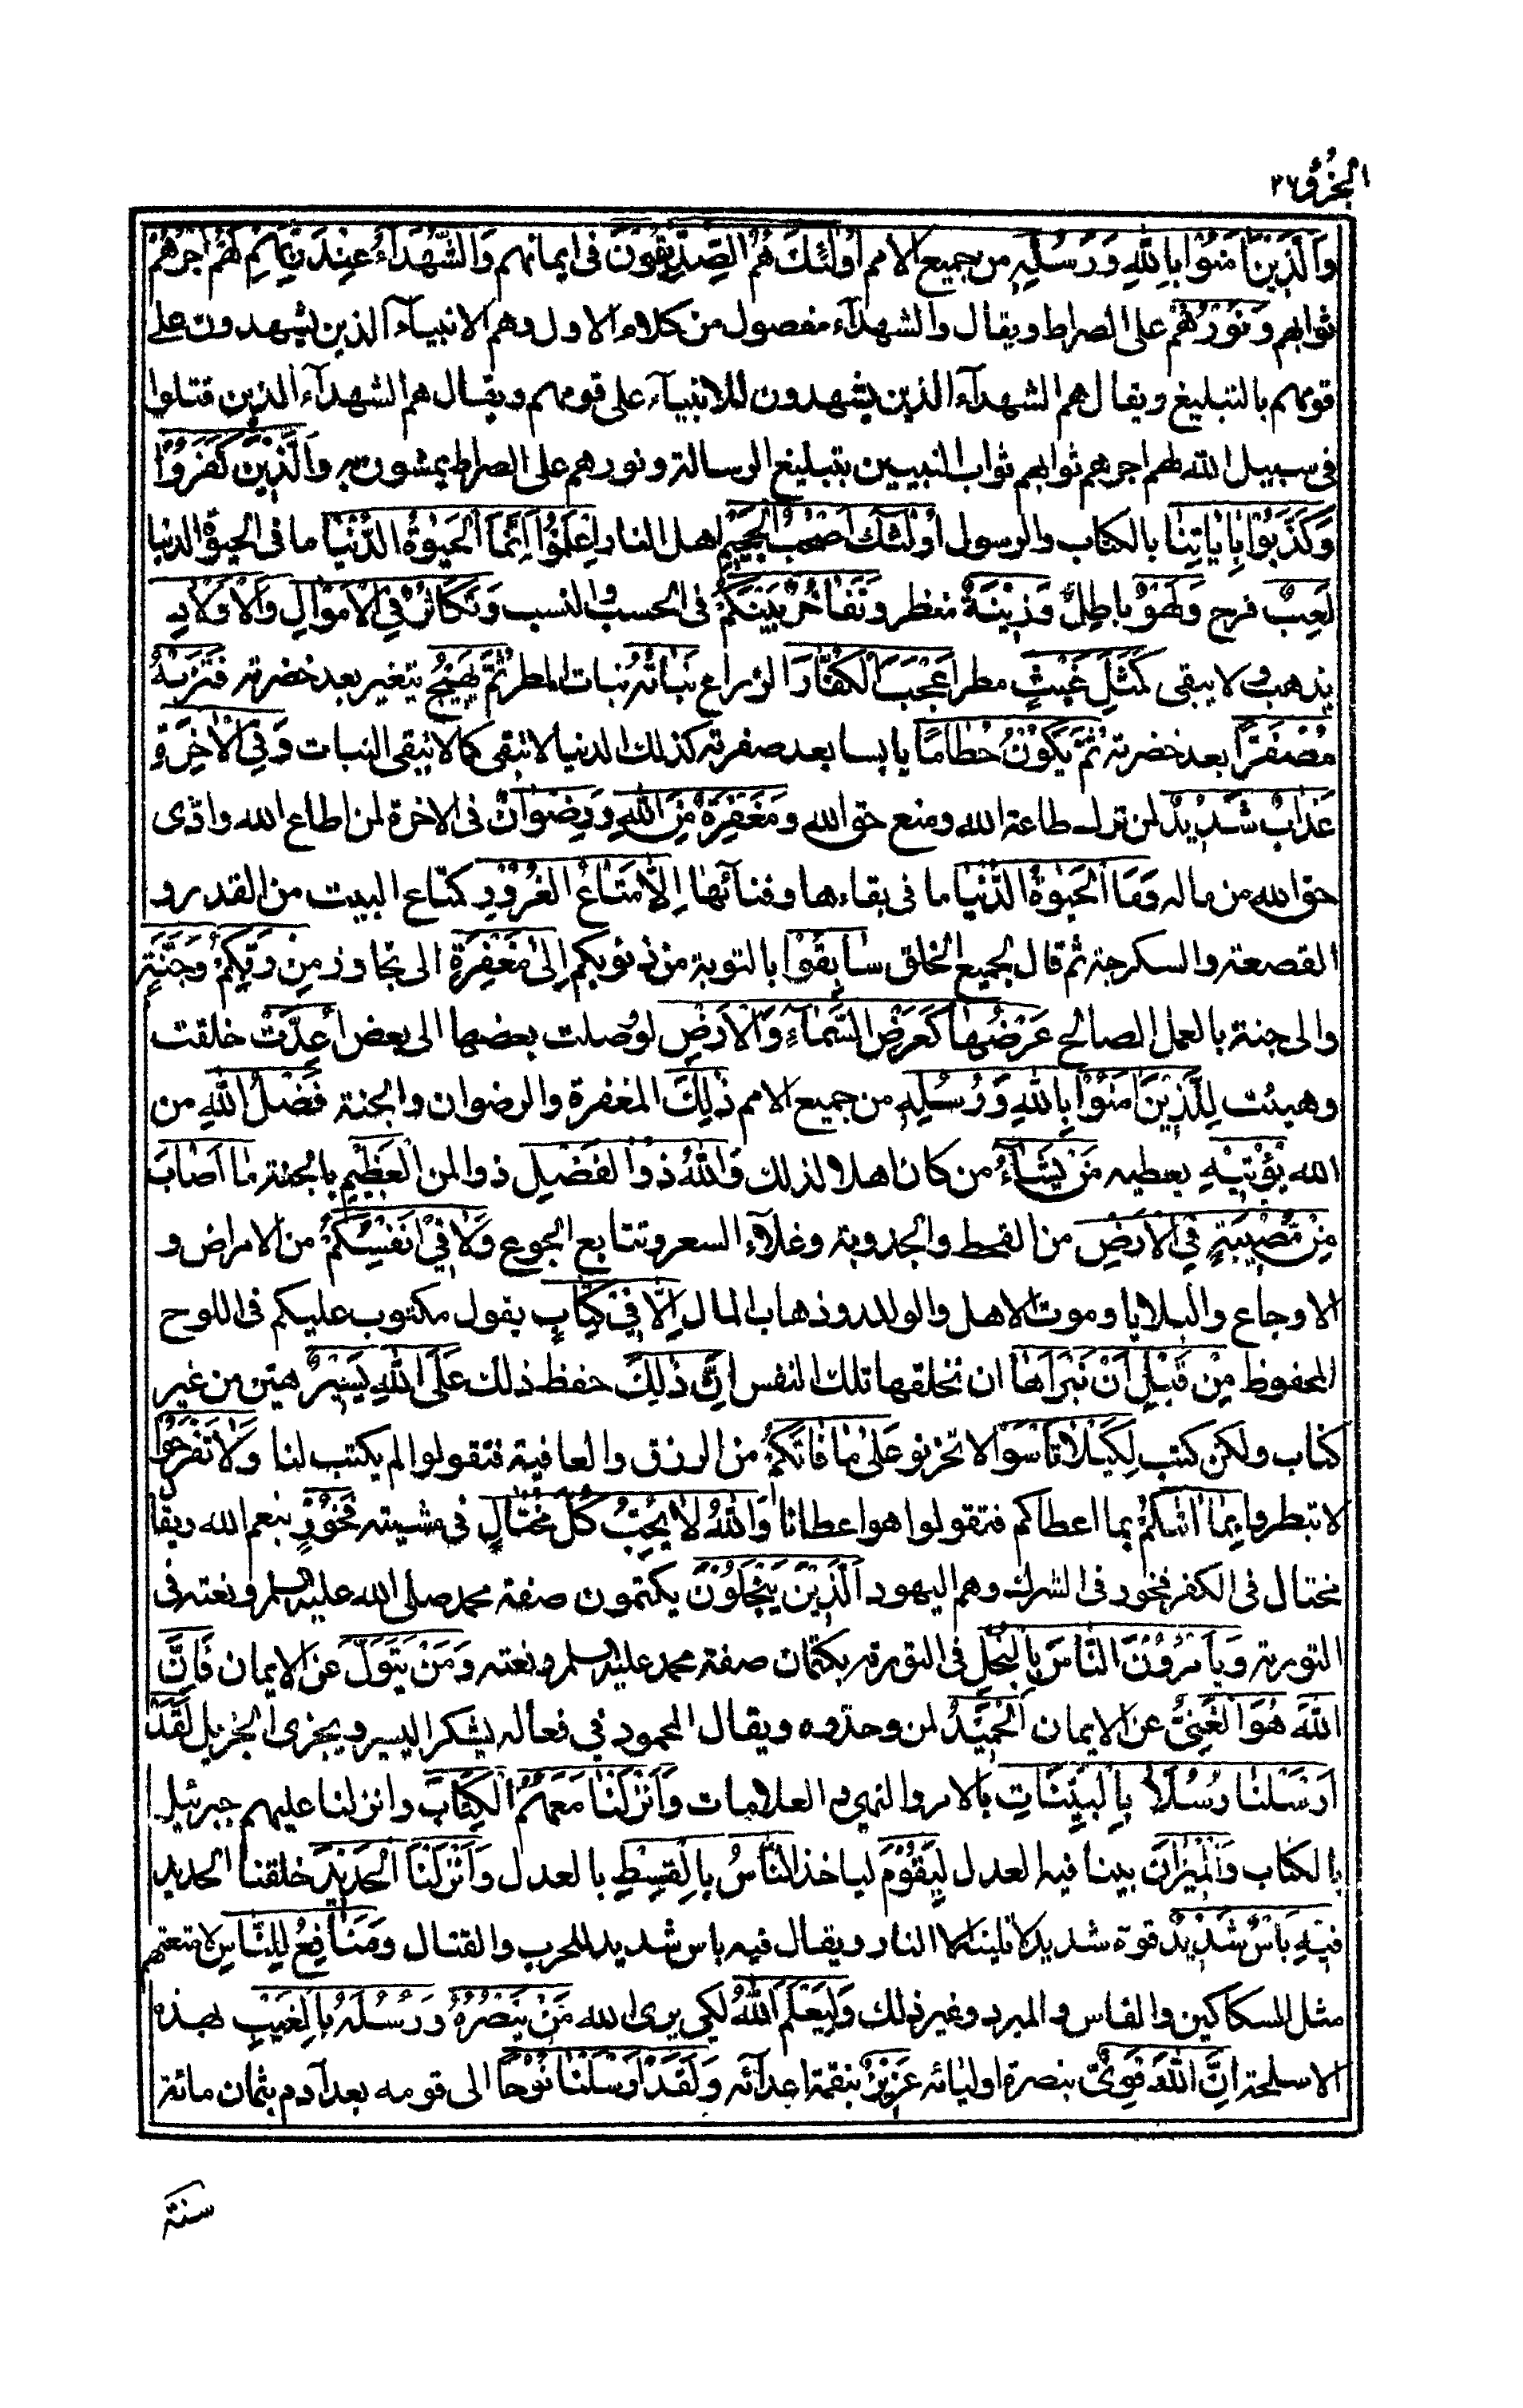 الجزؤ ٢٧
وَالَّذِيْنَ اٰمَنُوْا بِاللّٰهِ وَرُسُلِهٖ من جميع الامم اُولٰئِكَ هُمُ الصِّدِّيْقُوْنَ فى ايمانهم وَالشُّهَدَآءُ عِنْدَ رَبِّهِمْ لَهُمْ اَجْرُهُمْ
ثوابهم وَنُوْرُهُمْ على الصراط ويقال والشهدآء مفصول من كلام الاول وهم الانبيآء الذين يشهدون على
قومهم بالتبليغ ويقال هم الشهدآء الذين يشهدون للانبيآء على قومهم ويقال هم الشهدآء الذين قتلوا
فى سبيل الله لهم اجرهم ثوابهم ثواب النبيين بتبليغ الرسالة ونورهم على الصراط يمشون به وَالَّذِيْنَ كَفَرُوْا
وَكَذَّبُوْا بِاٰيَاتِنَا بالكتاب والرسول اُولٰئِكَ اَصْحٰبُ الْجَحِيْمِ اهل النار اِعْلَمُوْا اَنَّمَا الْحَيٰوةُ الدُّنْيَا ما فى الحيوة الدنيا
لَعِبٌ فرح وَلَهْوٌ باطل وَزِيْنَةٌ منظر وَتَفَاخُرٌ بَيْنَكُمْ فى الحسب والنسب وَتَكَاثُرٌ فِى الْاَمْوَالِ وَالْاَوْلَادِ
يذهب ولا يبقى كَمَثَلِ غَيْثٍ مطر اَعْجَبَ الْكُفَّارَ الزراع نَبَاتُهٗ نبات المطر ثُمَّ يَهِيْجُ يتغير بعد خضرته فَتَرٰىهُ
مُصْفَرًّا بعد خضرته ثُمَّ يَكُوْنُ حُطَامًا يابسا بعد صفرته كذلك الدنيا لا تبقى كما لا يبقى النبات وَفِى الْاٰخِرَةِ
عَذَابٌ شَدِيْدٌ لمن ترك طاعة الله ومنع حق الله وَمَغْفِرَةٌ مِّنَ اللّٰهِ وَرِضْوَانٌ فى الاخرة لمن اطاع الله وادّى
حق الله من ماله وَمَا الْحَيٰوةُ الدُّنْيَا ما فى بقاءها وفنآئها اِلَّا مَتَاعُ الْغُرُوْرِ كمتاع البيت من القدر و
القصعة والسكرجة ثم قال لجميع الخلق سَابِقُوْا بالتوبة من ذنوبكم اِلٰى مَغْفِرَةٍ الى تجاوز مِنْ رَّبِّكُمْ وَجَنَّةٍ
والى جنة بالعمل الصالح عَرْضُهَا كَعَرْضِ السَّمَآءِ وَالْاَرْضِ لو وُصلت بعضها الى بعض اُعِدَّتْ خلقت
وهيئت لِلَّذِيْنَ اٰمَنُوْا بِاللّٰهِ وَرُسُلِهٖ من جميع الامم ذٰلِكَ المغفرة والرضوان والجنة فَضْلُ اللّٰهِ من
الله يُؤْتِيْهِ يعطيه مَنْ يَّشَآءُ من كان اهلا لذلك وَاللّٰهُ ذُو الْفَضْلِ ذو المن الْعَظِيْمِ بالجنة مَا اَصَابَ
مِنْ مُّصِيْبَةٍ فِى الْاَرْضِ من القحط والجدوبة وغلآء السعر وتتابع الجوع وَلَا فِىْ اَنْفُسِكُمْ من الامراض و
الاوجاع والبلايا وموت الاهل والولد وذهاب المال اِلَّا فِىْ كِتَابٍ يقول مكتوب عليكم فى اللوح
المحفوظ مِنْ قَبْلِ اَنْ نَّبْرَاَهَا ان نخلقها تلك النفس اِنَّ ذٰلِكَ حفظ ذلك عَلَى اللّٰهِ يَسِيْرٌ هين من غير
كتاب ولكن كتب لِكَيْلَا تَاْسَوْا لا تحزنو عَلٰى مَا فَاتَكُمْ من الرزق والعافية فتقولوا لم يكتب لنا وَلَا تَفْرَحُوْا
لا تبطروا بِمَا اٰتٰىكُمْ بما اعطاكم فتقولوا هو اعطانا وَاللّٰهُ لَا يُحِبُّ كُلَّ مُخْتَالٍ فى مشيته فَخُوْرٍ بنعم الله ويقا
مختال فى الكفر فخور فى الشرك وهم اليهود اَلَّذِيْنَ يَبْخَلُوْنَ يكتمون صفة محمد صلى الله عليه وسلم ونعته فى
التورية وَيَاْمُرُوْنَ النَّاسَ بِالْبُخْلِ فى التورية بكتمان صفة محمد عليه وسلم ونعته وَمَنْ يَّتَوَلَّ عن الايمان فَاِنَّ
اللّٰهَ هُوَ الْغَنِىُّ عن الايمان الْحَمِيْدُ لمن وحدوه ويقال المحمود فى فعاله يشكر اليسير ويجزى الجزيل لَقَدْ
اَرْسَلْنَا رُسُلَنَا بِالْبَيِّنَاتِ بالامر والنهى والعلامات وَاَنْزَلْنَا مَعَهُمُ الْكِتَابَ وانزلنا عليهم جبرئيل
بالكتاب وَالْمِيْزَانَ بينا فيه العدل لِيَقُوْمَ لياخذ النَّاسُ بِالْقِسْطِ بالعدل وَاَنْزَلْنَا الْحَدِيْدَ خلقنا الحديد
فِيْهِ بَاْسٌ شَدِيْدٌ قوة شديدة لا يلينه الا النار ويقال فيه باس شديد للحرب والقتال وَمَنَافِعُ لِلنَّاسِ لامتعتهم
مثل السكاكين والفاس والمبرد وغير ذلك وَلِيَعْلَمَ اللّٰهُ لكى يرى الله مَنْ يَّنْصُرُهٗ وَرُسُلَهٗ بِالْغَيْبِ بهذه
الاسلحة اِنَّ اللّٰهَ قَوِىٌّ بنصرة اوليائه عَزِيْزٌ بنقمة اعدآئه وَلَقَدْ اَرْسَلْنَا نُوْحًا الى قومه بعد آدم بثمان مائة
سنة